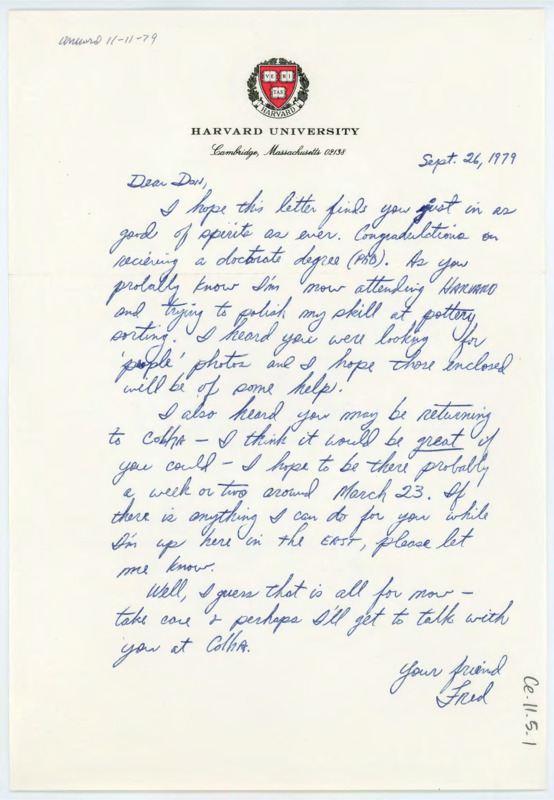 answered 11-11-79
VE RI
TAS
HARVARD
HARVARD UNIVERSITY
Cambridge, Massachusetts 02138
Sept. 26, 1979
Dear Don,
I hope this letter finds you just in as
good of spirits as ever. Congradulations on
recieving a doctorate degree (PhD). As you
probally know I'm now attending HARVARD
and trying to polish my skill at pottery
sorting. I heard you were looking for
'people' photos and I hope those enclosed
will be of some help.
I also heard you may be returning
to Colha – I think it would be great if
you could – I hope to be there probably
a week or two around March 23. If
there is anything I can do for you while
I'm up here in the EAST, please let
me know.
Well, I guess that is all for now –
take care & perhaps I'll get to talk with
you at Colha.
Your friend
Fred
Ce-11.5-1